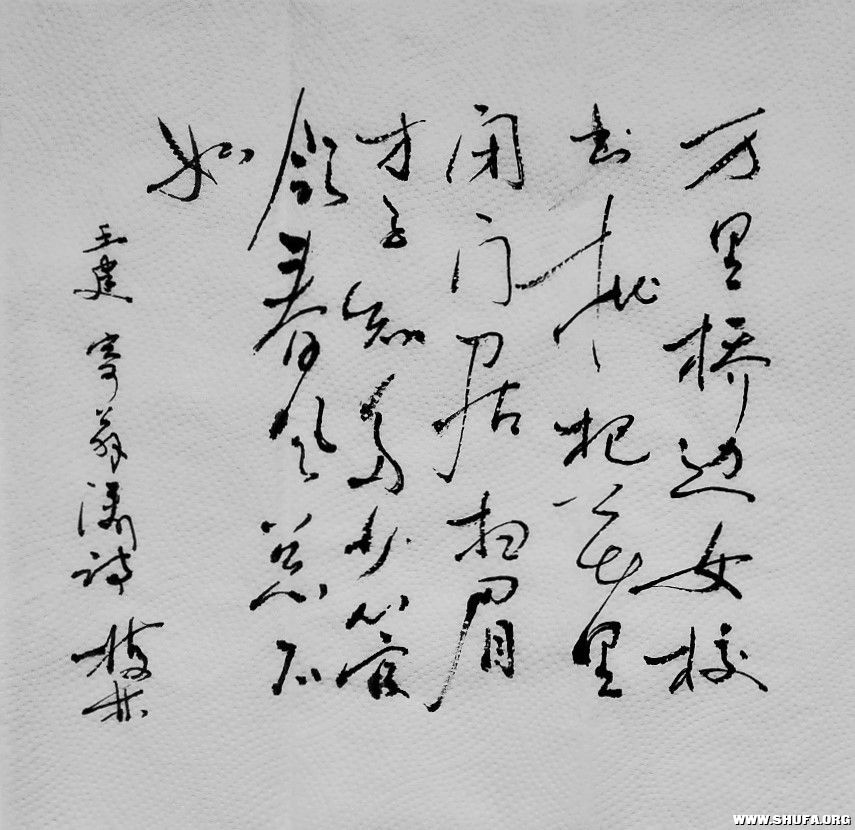 万里桥边女校
书枇杷花里
闭门居扫眉
才子知多少管
领春风总不
如
王建 寄薛涛诗
WWW.SHUFA.ORG